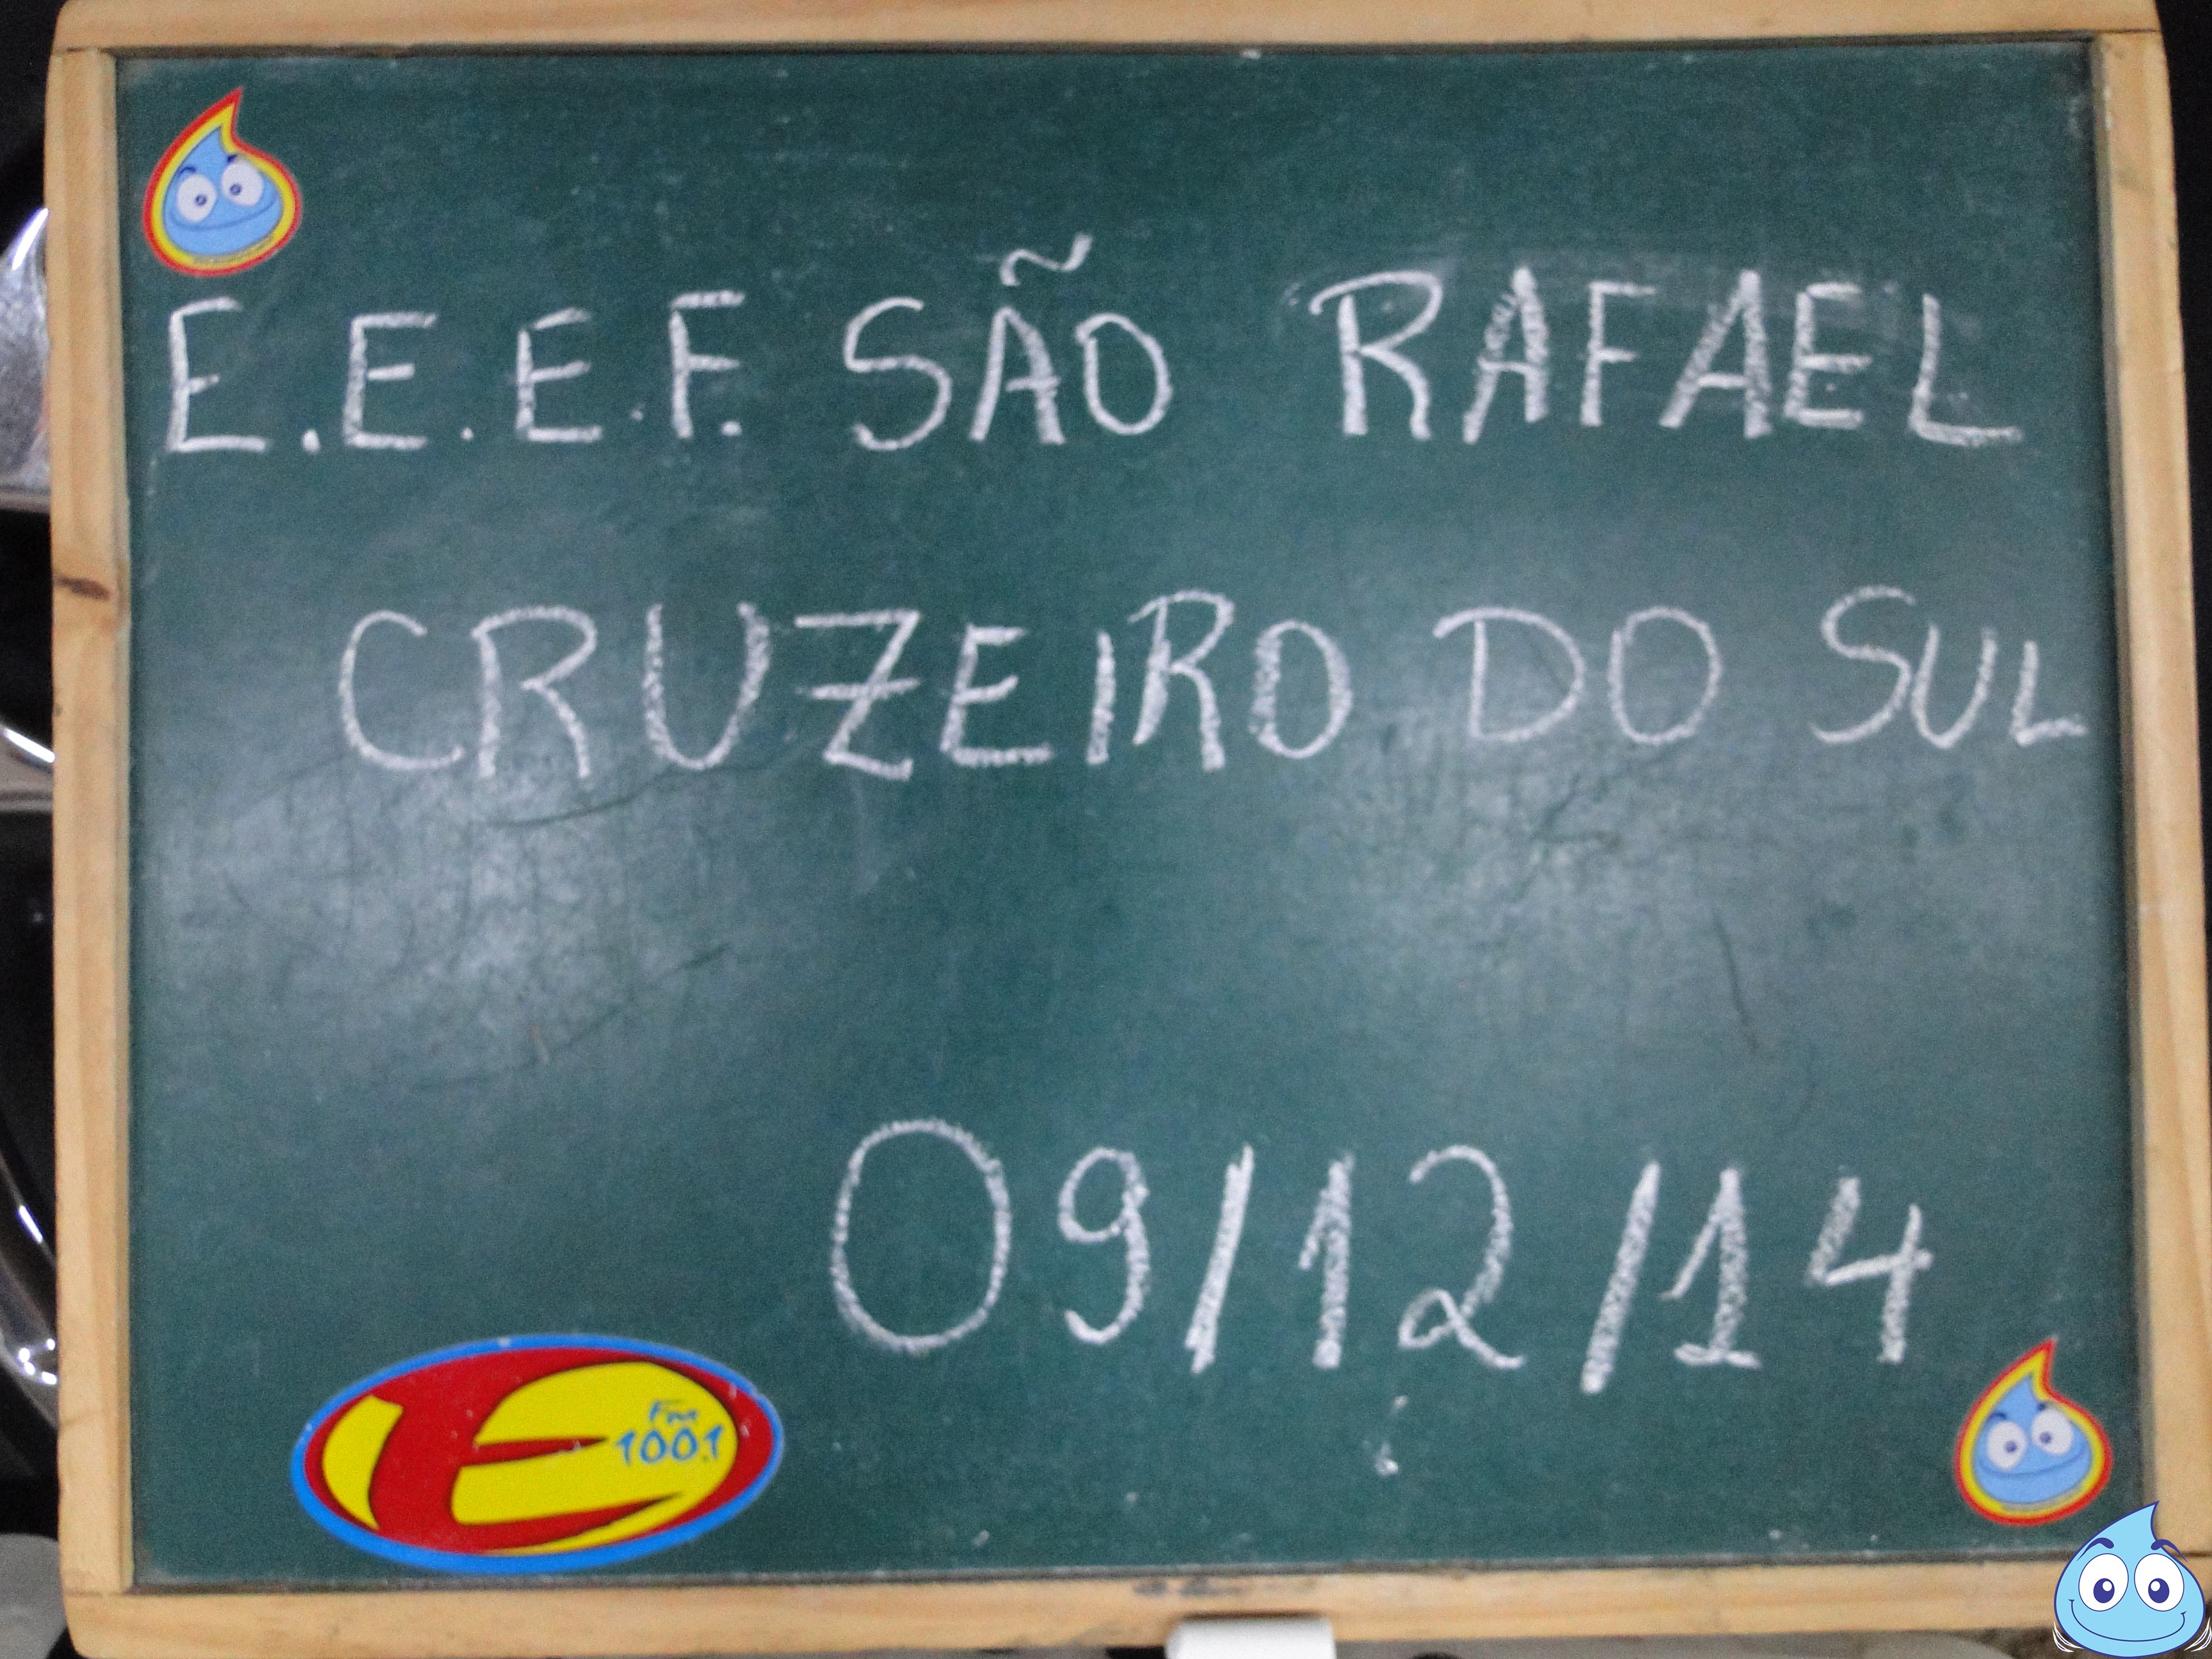 E.E.E.F. SÃO RAFAEL
CRUZEIRO DO SUL
09/12/14
Fm
100.1